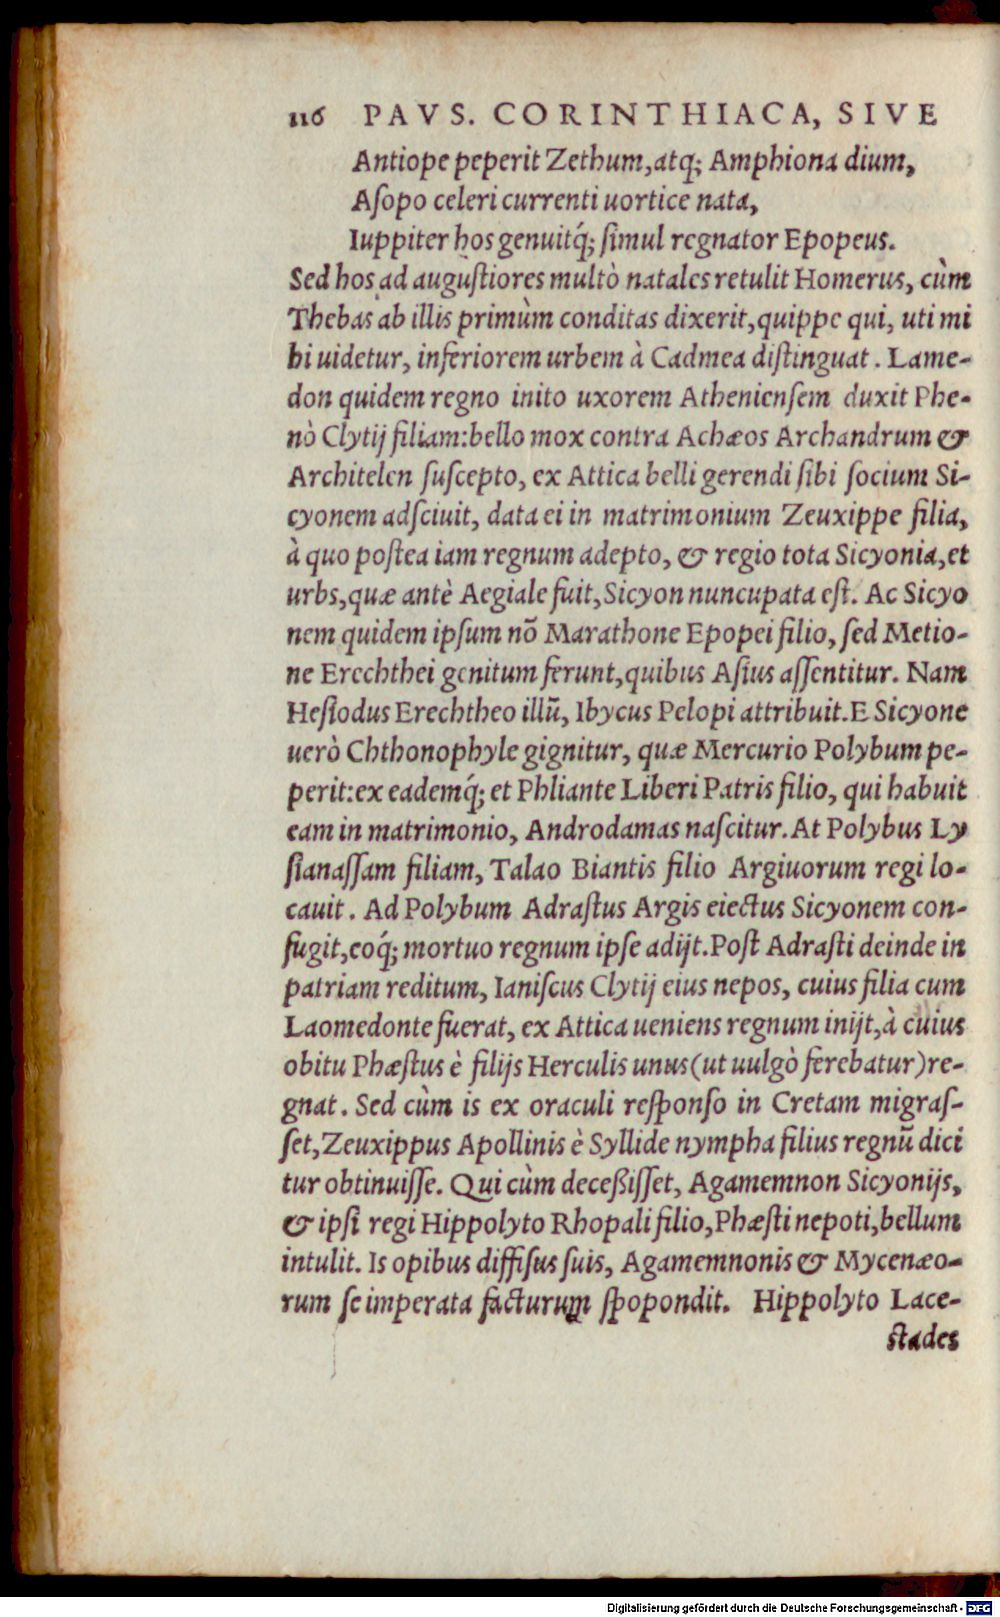 116 PAVS. CORINTHIACA, SIVE
Antiope peperit Zethum, atq; Amphiona dium,
Aſopo celeri currenti uortice nata,
Iuppiter hos genuitq́; ſimul regnator Epopeus.
Sed hos ad auguſtiores multò natales retulit Homerus, cùm
Thebas ab illis primùm conditas dixerit, quippe qui, uti mi
hi uidetur, inferiorem urbem à Cadmea diſtinguat. Lame-
don quidem regno inito uxorem Athenienſem duxit Phe-
nò Clytij filiam: bello mox contra Achæos Archandrum &
Architelen ſuſcepto, ex Attica belli gerendi ſibi ſocium Si-
cyonem adſciuit, data ei in matrimonium Zeuxippe filia,
à quo poſtea iam regnum adepto, & regio tota Sicyonia, et
urbs, quæ antè Aegiale fuit, Sicyon nuncupata eſt. Ac Sicyo
nem quidem ipſum nõ Marathone Epopei filio, ſed Metio-
ne Erechthei genitum ferunt, quibus Aſius aſſentitur. Nam
Heſiodus Erechtheo illũ, Ibycus Pelopi attribuit. E Sicyone
uerò Chthonophyle gignitur, quæ Mercurio Polybum pe-
perit: ex eademq́; et Phliante Liberi Patris filio, qui habuit
eam in matrimonio, Androdamas naſcitur. At Polybus Ly
ſianaſſam filiam, Talao Biantis filio Argiuorum regi lo-
cauit. Ad Polybum Adraſtus Argis eiectus Sicyonem con-
fugit, eoq́; mortuo regnum ipſe adijt. Poſt Adraſti deinde in
patriam reditum, Ianiſcus Clytij eius nepos, cuius filia cum
Laomedonte fuerat, ex Attica ueniens regnum inijt, à cuius
obitu Phæſtus è filijs Herculis unus (ut uulgò ferebatur) re-
gnat. Sed cùm is ex oraculi reſponſo in Cretam migraſ-
ſet, Zeuxippus Apollinis è Syllide nympha filius regnũ dici
tur obtinuiſſe. Qui cùm deceßiſſet, Agamemnon Sicyonijs,
& ipſi regi Hippolyto Rhopali filio, Phæſti nepoti, bellum
intulit. Is opibus diffiſus ſuis, Agamemnonis & Mycenæo-
rum ſe imperata facturum ſpopondit. Hippolyto Lace-
ſtades
Digitalisierung gefördert durch die Deutsche Forschungsgemeinschaft - DFG